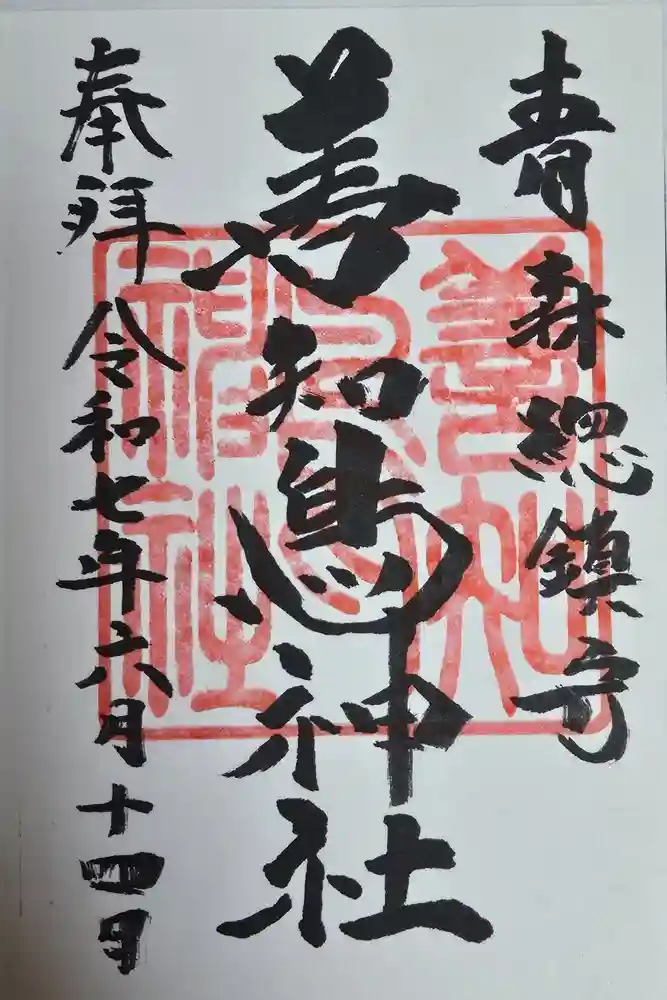 青森総鎮守
善知鳥神社
奉拝 令和七年六月十四日
善知鳥神社